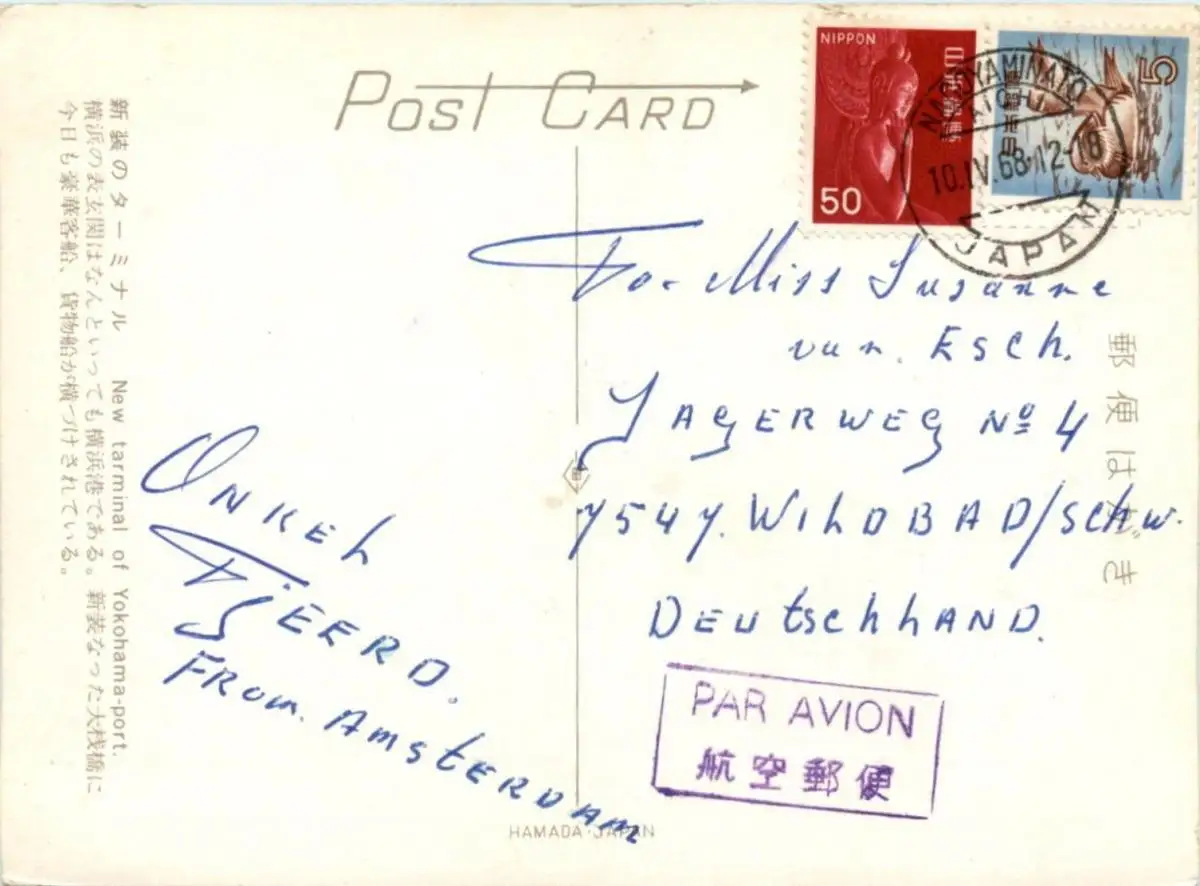 POST CARD
NIPPON
50
日本郵便
5
日本郵便
NAGOYAMINATO
AICHI
10.IV.68.12-18
JAPAN
新装のターミナル New tarminal of Yokohama-port.
横浜の表玄関はなんといっても横浜港である。新装なった大桟橋に
今日も豪華客船、貨物船が横づけされている。
郵便はがき
To Miss Susanne
van. Esch.
JAGERWEG No 4
7547. WILDBAD/SCHW.
DEUtschlAND.
ONKEL
TJEERD.
FROM. AmstERDAM
PAR AVION
航空郵便
HAMADA·JAPAN